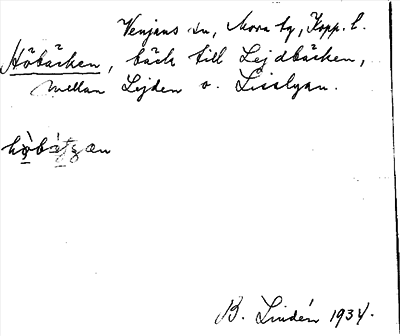 Venjans sn, Mora tg, Kopp. l.
Höbäcken, bäck till Lejdbäcken,
mellan Lejden o.
B. Lindén 1934.